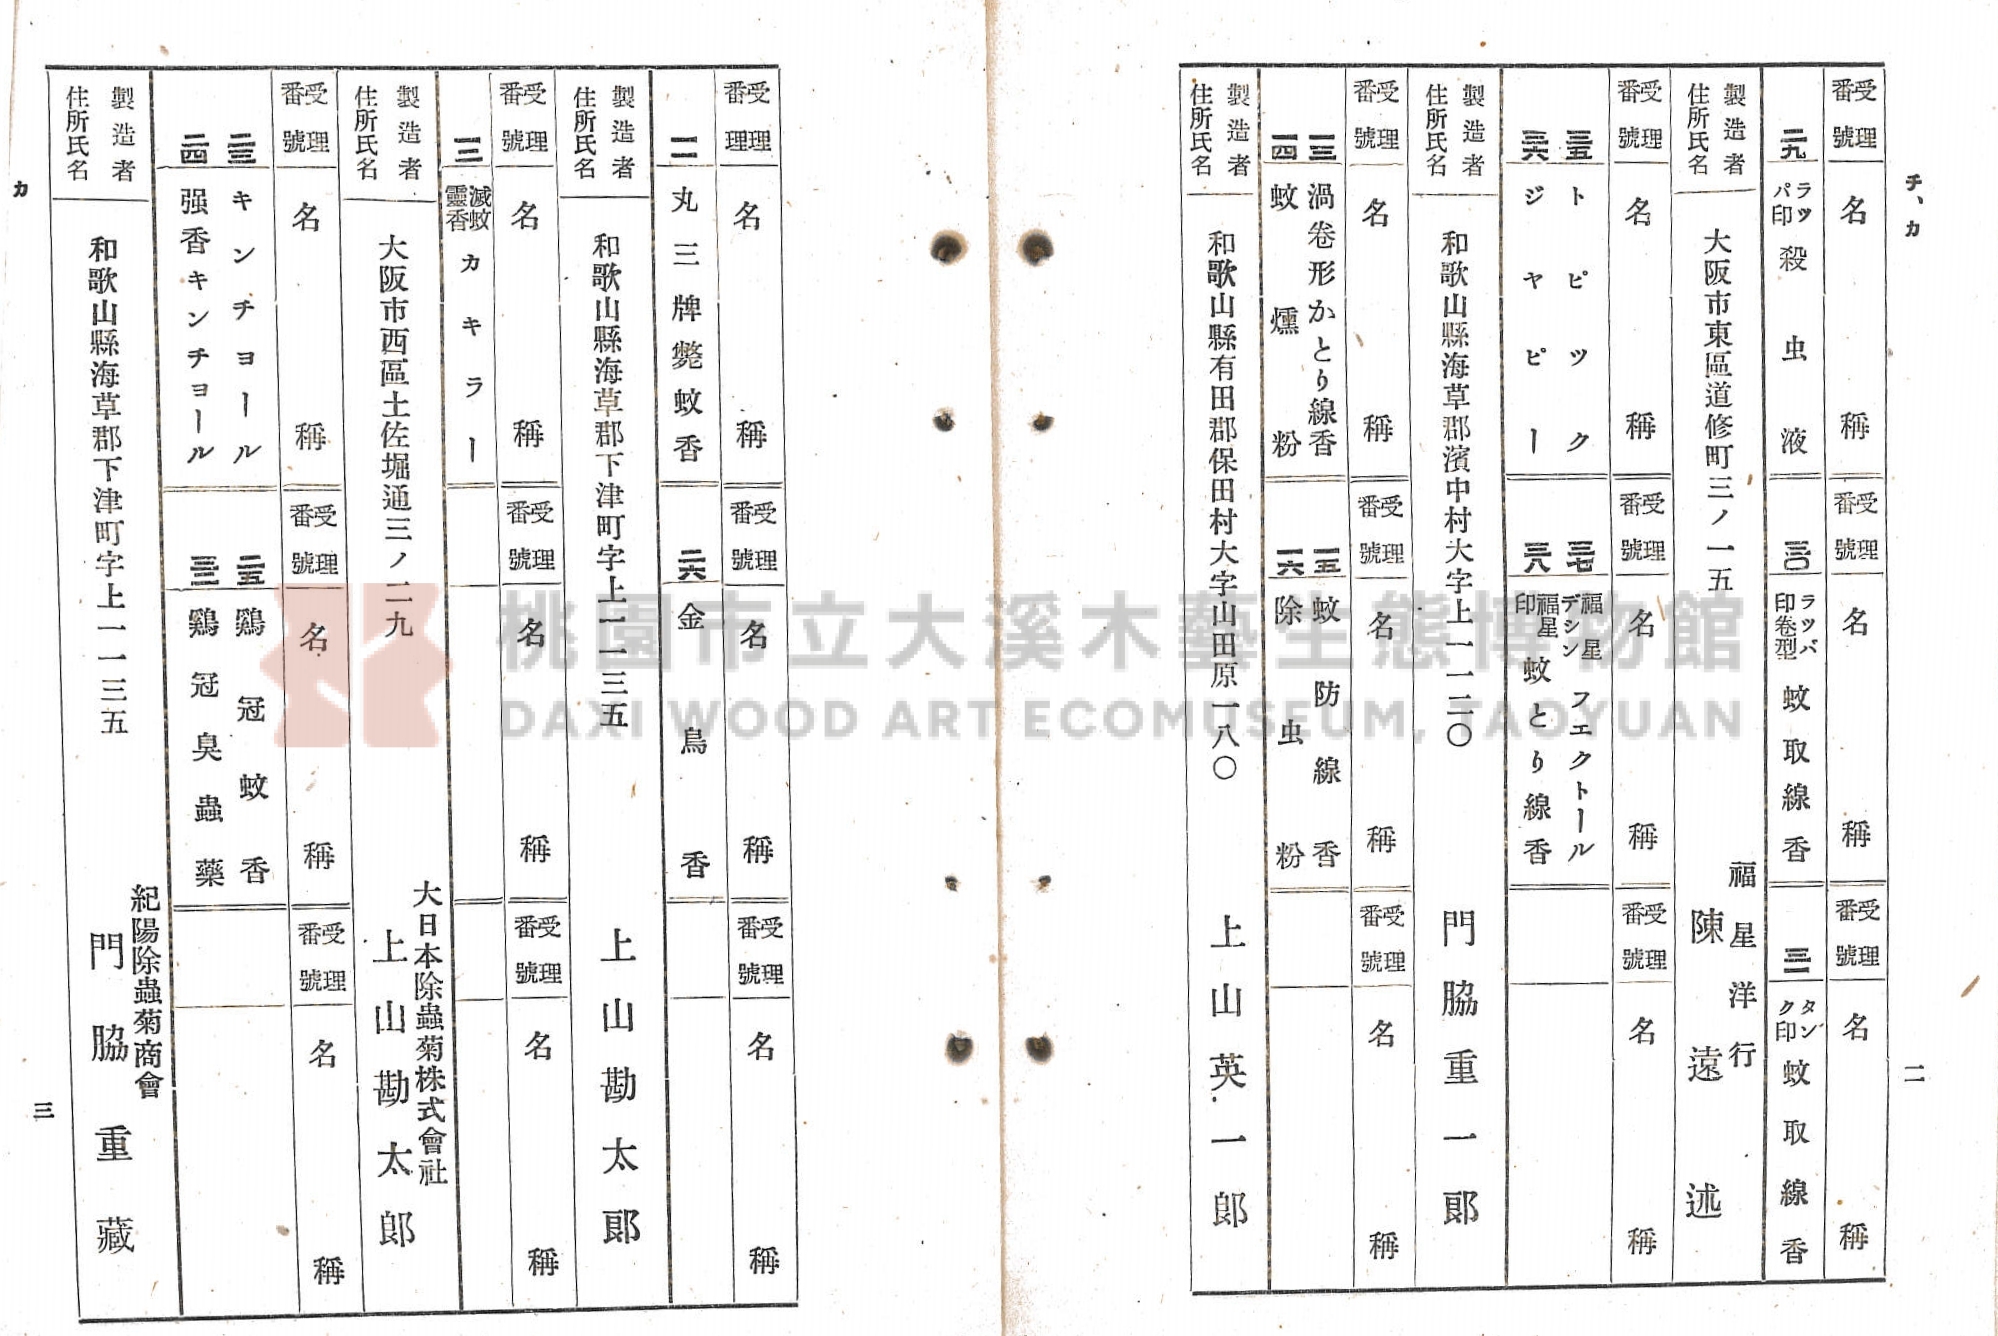 チ、カ
二
受理番號 名稱 受理番號 名稱 受理番號 名稱
二九 ラッパ印 殺虫液
三〇 ラツバ印卷型 蚊取線香
三一 タンク印 蚊取線香
製造者住所氏名 大阪市東區道修町三ノ一五 福星洋行 陳遠述
受理番號 名稱 受理番號 名稱 受理番號 名稱
トピツク
ジヤピー
福星デシン フエクトール
福星印 蚊とり線香
製造者住所氏名 和歌山縣海草郡濱中村大字上一一二〇 門脇重一郎
受理番號 名稱 受理番號 名稱 受理番號 名稱
渦卷形かとり線香
蚊燻粉
蚊防線香
除虫粉
製造者住所氏名 和歌山縣有田郡保田村大字山田原一八〇 上山英一郎
受理番理 名稱 受理番號 名稱 受理番號 名稱
丸三牌斃蚊香
二六 金鳥香
製造者住所氏名 和歌山縣海草郡下津町字上一一三五 上山勘太郎
受理番號 名稱 受理番號 名稱 受理番號 名稱
滅蚊靈香 カキラー
製造者住所氏名 大阪市西區土佐堀通三ノ二九 大日本除蟲菊株式會社 上山勘太郎
受理番號 名稱 受理番號 名稱 受理番號 名稱
キンチョール
二四 强香キンチョール
二五 鷄冠蚊香
鷄冠臭蟲藥
製造者住所氏名 和歌山縣海草郡下津町字上一一三五 紀陽除蟲菊商會 門脇重藏
カ
三
桃園市立大溪木藝生態博物館
DAXI WOOD ART ECOMUSEUM, TAOYUAN